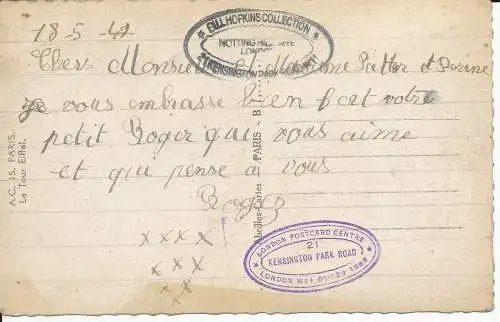 18-5-42
Chers Monsieur et Madame Pattor et Dorine
Je vous embrasse bien fort votre
petit Roger qui vous aime
et qui pense a vous
Roger
x x x x
x x x
x x
A.C. 15. PARIS.
La Tour Eiffel.
Abeilles-Cartes PARIS - B
★ BILL HOPKINS COLLECTION ★
NOTTING HILL GATE
LONDON
KENSINGTON PARK
★ LONDON POSTCARD CENTRE ★
21
KENSINGTON PARK ROAD
LONDON W11